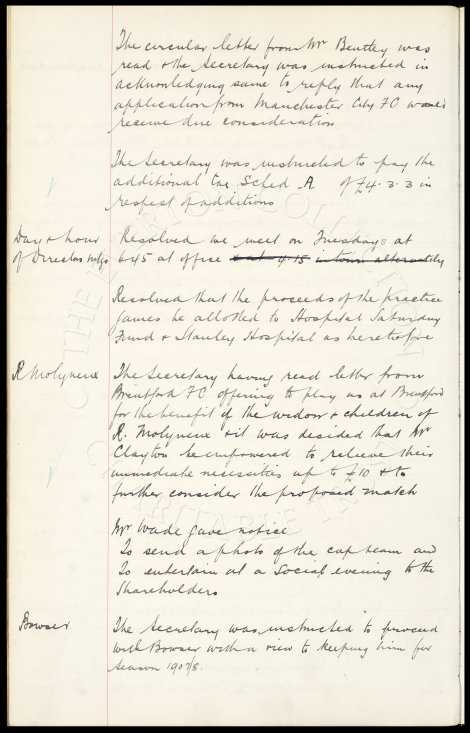 The circular letter from Mr Bentley was
read & the Secretary was instructed in
acknowledging same to reply that any
application from Manchester City FC would
receive due consideration
The Secretary was instructed to pay the
additional tax Sched A of £4.3.3 in
respect of additions
Day & hour
of Directors mtgs
Resolved we meet on Tuesdays at
6.45 at office & at 4.15 in town alternately
Resolved that the proceeds of the practice
games be allotted to Hospital Saturday
Fund & Stanley Hospital as heretofore
R Molyneux
The Secretary having read letter from
Brentford FC offering to play us at Brentford
for the benefit of the widow & children of
R. Molyneux & it was decided that Mr
Clayton be empowered to relieve their
immediate necessities up to £10 & to
further consider the proposed match
Mr Wade gave notice
To send a photo of the cup team and
To entertain at a Social evening to the
Shareholders
Bowser
The Secretary was instructed to proceed
with Bowser with a view to keeping him for
Season 1907/8.